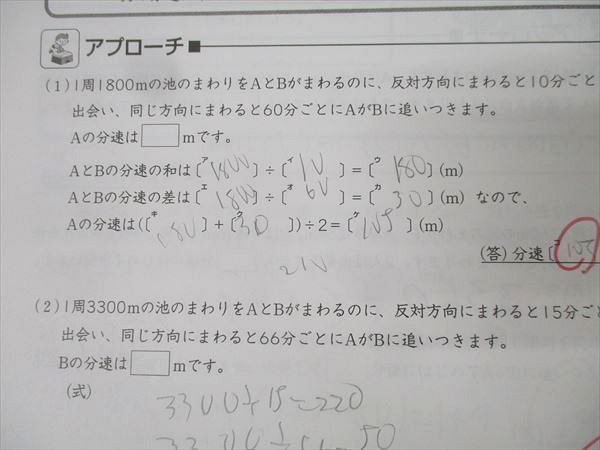 アプローチ
(1) 1周1800mの池のまわりをAとBがまわるのに、反対方向にまわると10分ごと
出会い、同じ方向にまわると60分ごとにAがBに追いつきます。
Aの分速は□mです。
AとBの分速の和は〔ア1800〕÷〔イ10〕=〔ウ180〕(m)
AとBの分速の差は〔エ1800〕÷〔オ60〕=〔カ30〕(m) なので、
Aの分速は(〔キ180〕+〔ク30〕)÷2=〔ケ105〕(m)
210
(答) 分速〔コ105
(2) 1周3300mの池のまわりをAとBがまわるのに、反対方向にまわると15分ごと
出会い、同じ方向にまわると66分ごとにAがBに追いつきます。
Bの分速は□mです。
(式)
3300÷15=220
50